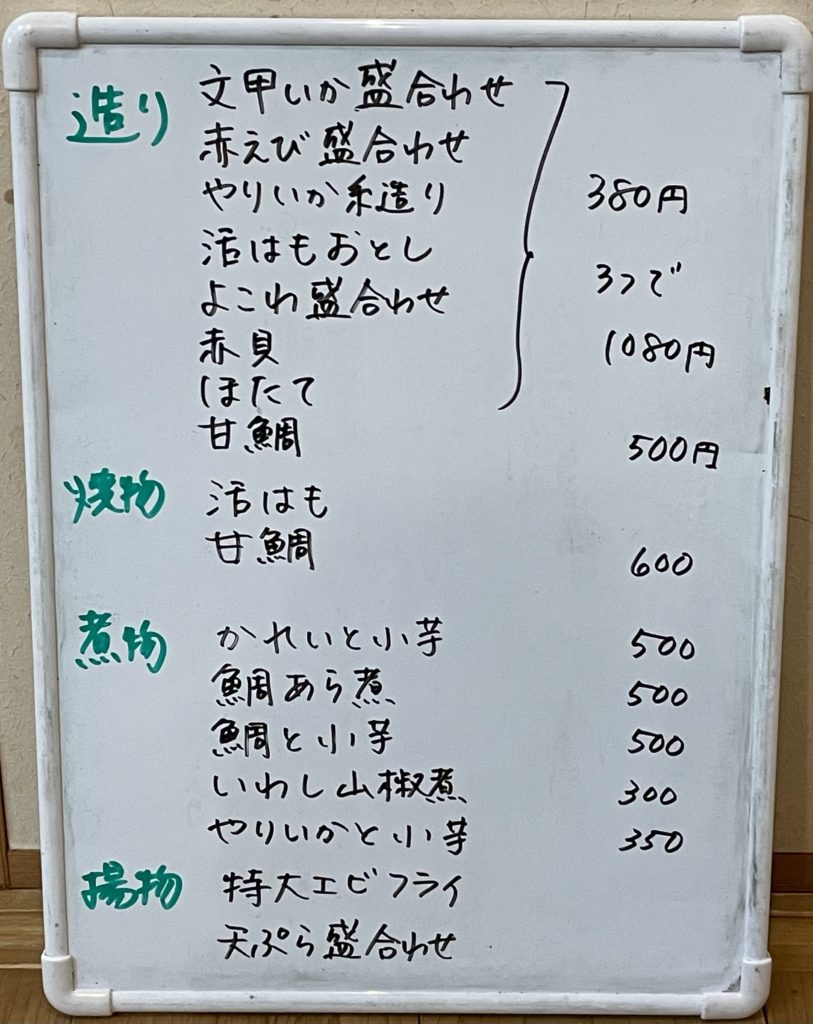 造り 文甲いか盛合わせ
赤えび盛合わせ
やりいか糸造り 380円
活はもおとし
よこわ盛合わせ 3つで
赤貝 1080円
ほたて
甘鯛 500円
焼物 活はも
甘鯛 600
煮物 かれいと小芋 500
鯛あら煮 500
鯛と小芋 500
いわし山椒煮 300
やりいかと小芋 350
揚物 特大エビフライ
天ぷら盛合わせ